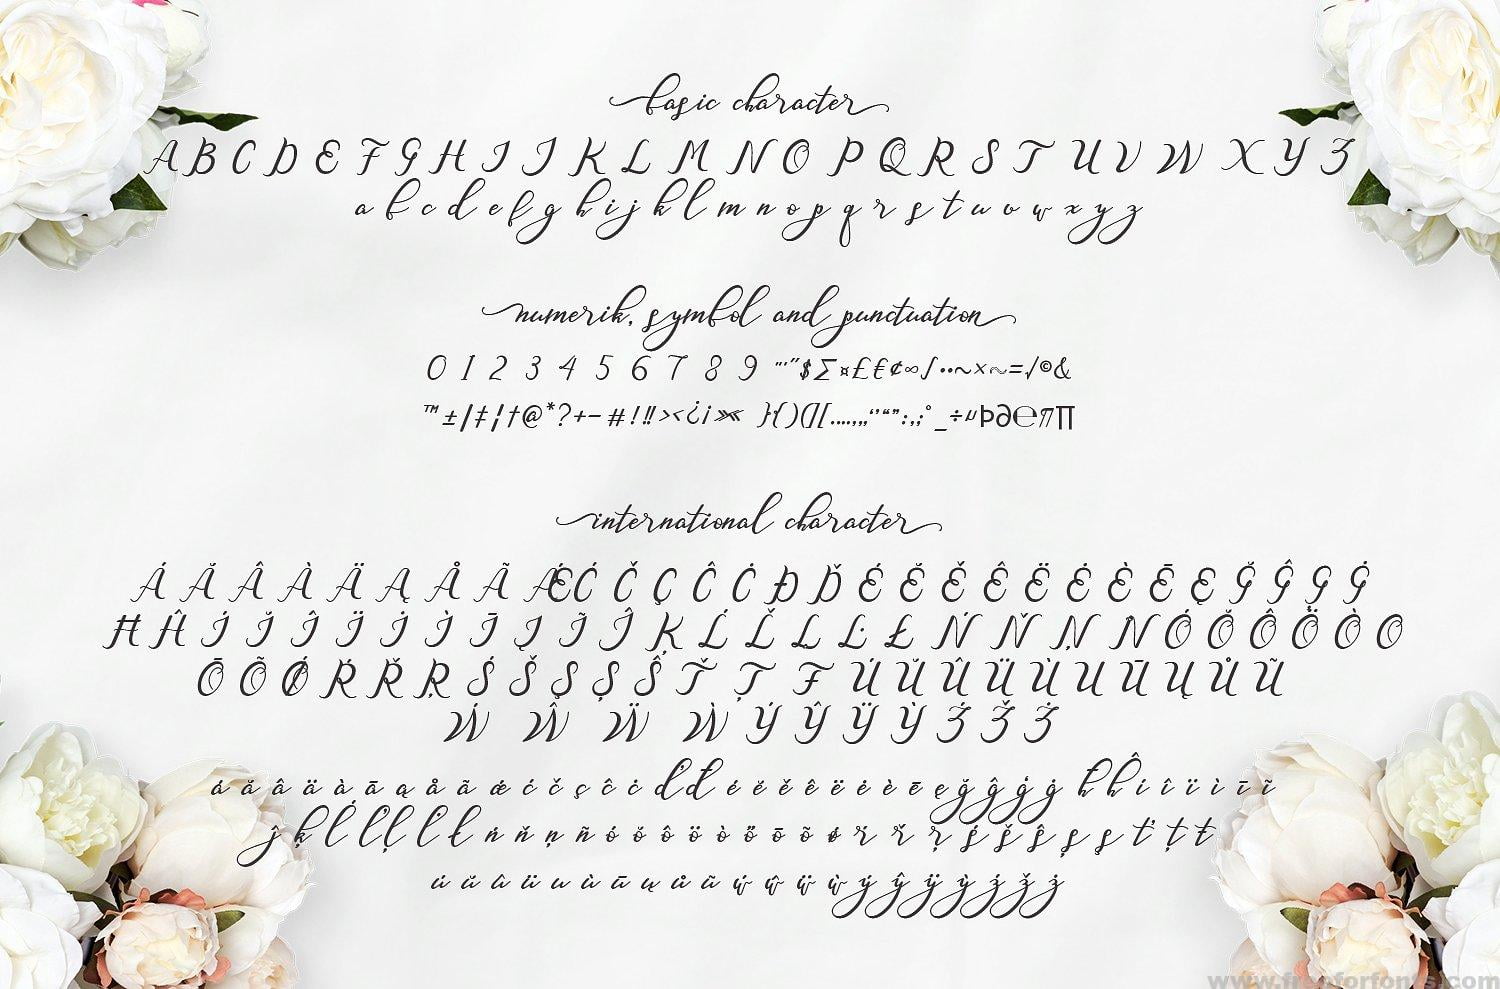 basic character
A B C D E F G H I J K L M N O P Q R S T U V W X Y Z
a b c d e f g h i j k l m n o p q r s t u v w x y z
numerik, symbol and punctuation
0 1 2 3 4 5 6 7 8 9 "'"$∑¤£€¢∞∫··~×~=√©&
™±/|‡¦†@*?+−#!!!><¿¡»« }{)(][.…,„‘’“”:,;°_÷µÞ∂℮π∏
international character
Á Ă Â À Ä Ą Å Ã Æ Ć Č Ç Ĉ Ċ Đ Ď É Ĕ Ě Ê Ë Ė È Ē Ę Ğ Ĝ Ģ Ġ
Ħ Ĥ Í Ĭ Î Ï İ Ì Ī Į Ĩ Ĵ Ķ Ĺ Ľ Ļ Ŀ Ł Ń Ň Ņ Ñ Ó Ŏ Ô Ö Ò O
Ō Õ Ø Ŕ Ř Ŗ Ś Š Ş Ș Ŝ Ť Ț Ŧ Ú Ŭ Û Ü Ù U Ū Ų Ů Ũ
Ẃ Ŵ Ẅ Ẁ Ý Ŷ Ÿ Ỳ Ź Ž Ż
á ă â ä à ā ą å ã æ ć č ç ĉ ċ ď đ é ĕ ě ê ë ė è ē ę ğ ĝ ģ ġ ħ ĥ í î ï ì ī ĩ
ĵ ķ ĺ ľ ļ ŀ ł ń ň ņ ñ ó ŏ ô ö ò ő ō õ ø ŕ ř ŗ ś š ŝ ş ș ť ț ŧ
ú ŭ û ü u ù ū ų ů ũ ẃ ŵ ẅ ẁ ý ŷ ÿ ỳ ź ž ż
www.freeforfonts.com